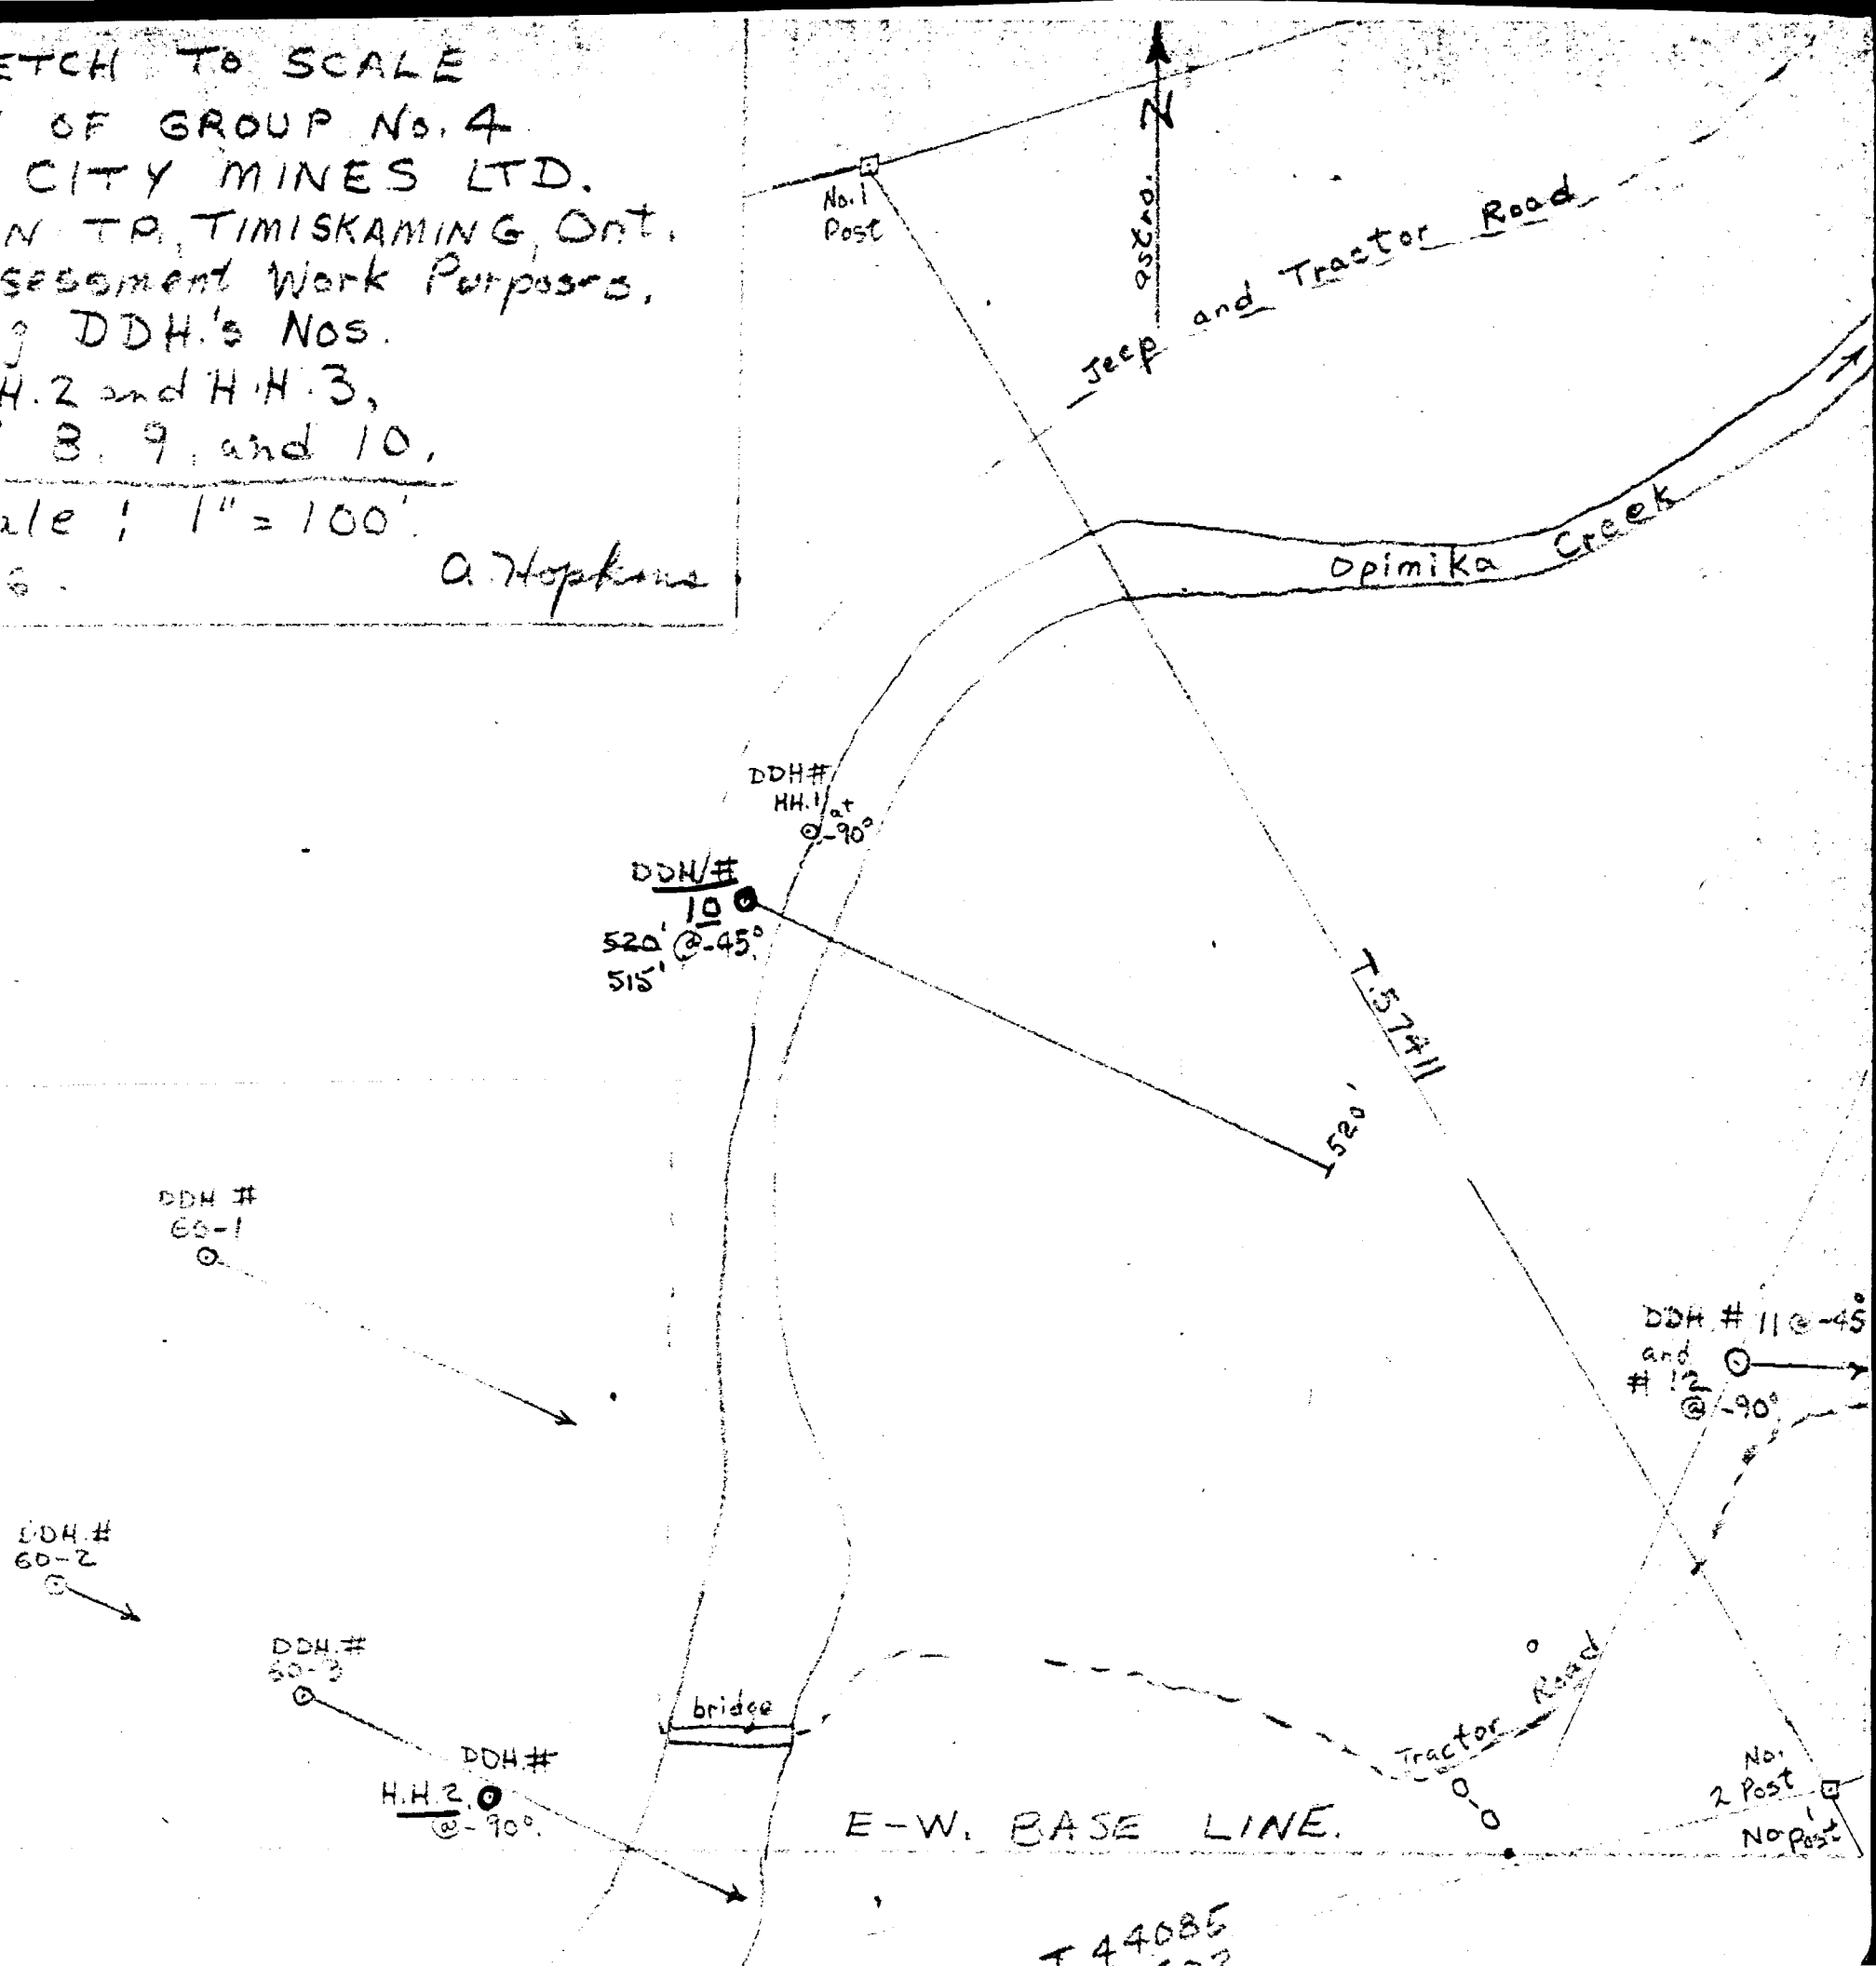 ETCH TO SCALE
OF GROUP No. 4
CITY MINES LTD.
N TP, TIMISKAMING, Ont.
sessment Work Purposes.
g DDH.'s Nos.
H.2 and H.H.3,
8, 9, and 10.
ale : 1" = 100'.
6.
A. Hopkins
No.1
Post
astro.
N
Jeep and Tractor Road
Opimika Creek
DDH#
HH.1 at
-90°
DDH#
10
520' @-45°
515'
T.57411
520'
DDH #
60-1
DDH.# 11 @ -45°
and
# 12
@ -90°
DDH.#
60-2
DDH.#
60-3
bridge
DDH.#
H.H.2.
@-90°.
Tractor Road
No.
2 Post
No 1 Post
E-W. BASE LINE.
T 44085